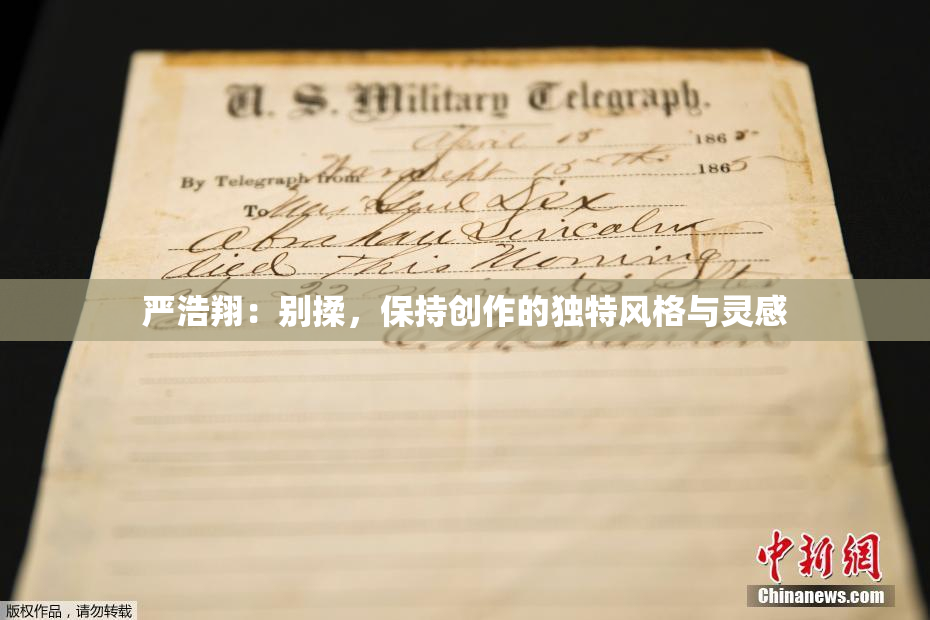 U. S. Military Telegraph.
April 15 1865
By Telegraph from War Dept 15th 1865
To Maj Genl Dix
Abraham Lincoln
died This Morning
at 22 minutes after
严浩翔：别揉，保持创作的独特风格与灵感
E. M. Stanton
中新网
Chinanews.com
版权作品，请勿转载